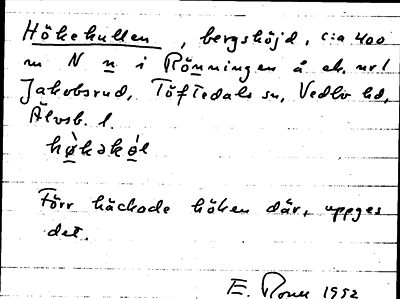 Hökekullen, bergshöjd, c:a 400
m N n i Rönningen å ek. nr 1
Jakobsrud, Töftedals sn, Vedbo hd,
Älvsb. l.
hø̀kəkøl
Förr häckade höken där, uppges
det.
E. 1952